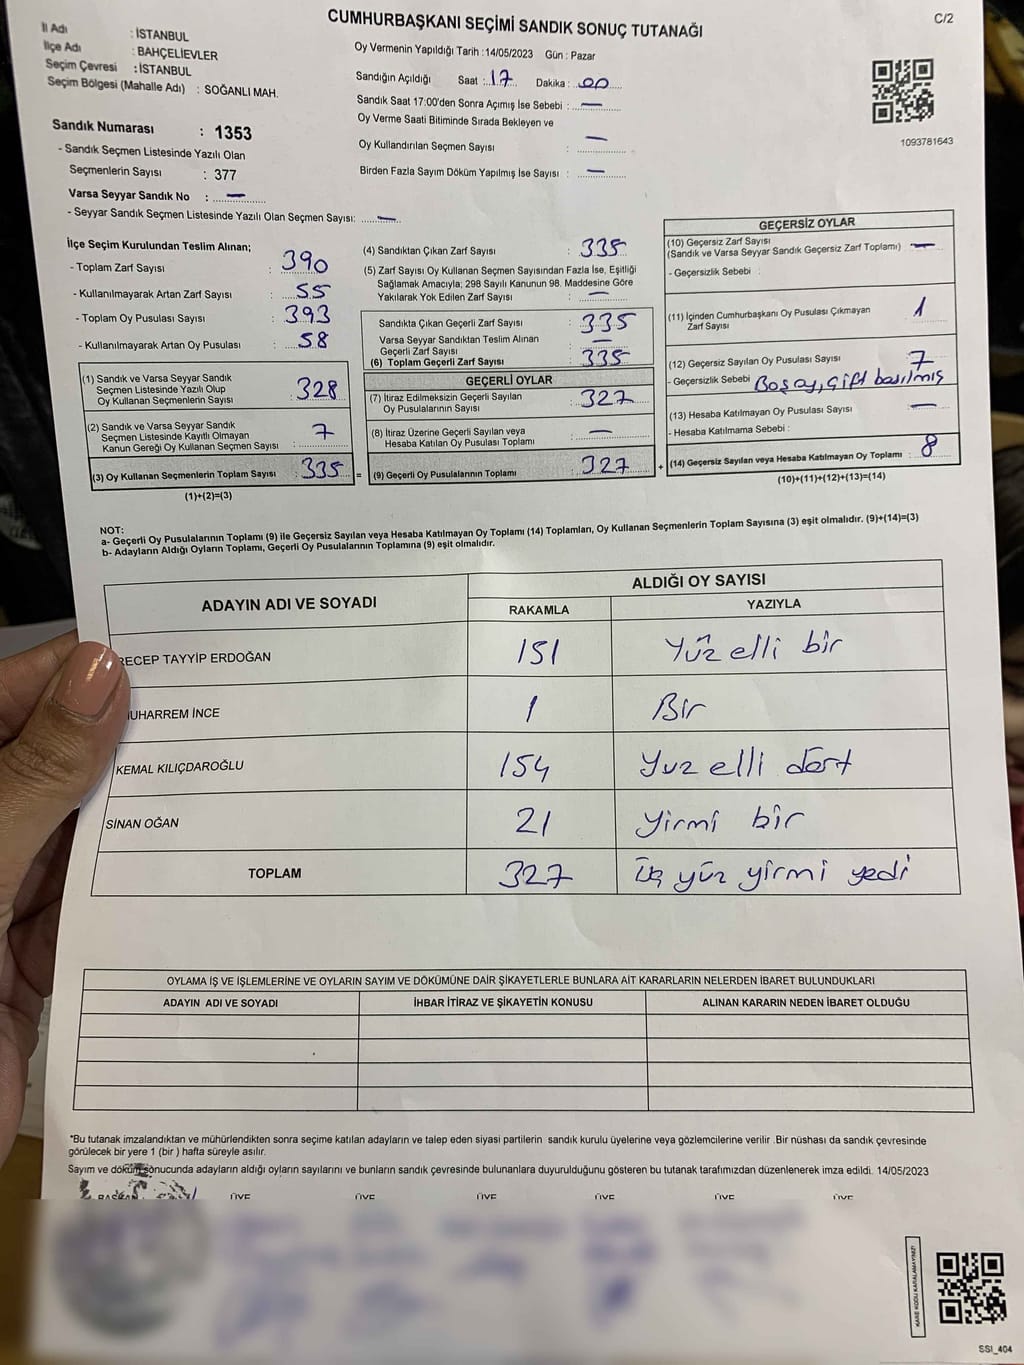 CUMHURBAŞKANI SEÇİMİ SANDIK SONUÇ TUTANAĞI
C/2
İl Adı : İSTANBUL
İlçe Adı : BAHÇELİEVLER
Seçim Çevresi : İSTANBUL
Seçim Bölgesi (Mahalle Adı) : SOĞANLI MAH.
Sandık Numarası : 1353
- Sandık Seçmen Listesinde Yazılı Olan
Seçmenlerin Sayısı : 377
Varsa Seyyar Sandık No : —
- Seyyar Sandık Seçmen Listesinde Yazılı Olan Seçmen Sayısı: —
Oy Vermenin Yapıldığı Tarih :14/05/2023 Gün : Pazar
Sandığın Açıldığı Saat : 17 Dakika : 00
Sandık Saat 17:00'den Sonra Açımış İse Sebebi : —
Oy Verme Saati Bitiminde Sırada Bekleyen ve
Oy Kullandırılan Seçmen Sayısı : —
Birden Fazla Sayım Döküm Yapılmış İse Sayısı : —
1093781643
İlçe Seçim Kurulundan Teslim Alınan;
- Toplam Zarf Sayısı : 390
- Kullanılmayarak Artan Zarf Sayısı : 55
- Toplam Oy Pusulası Sayısı : 393
- Kullanılmayarak Artan Oy Pusulası : 58
(1) Sandık ve Varsa Seyyar Sandık
Seçmen Listesinde Yazılı Olup
Oy Kullanan Seçmenlerin Sayısı : 328
(2) Sandık ve Varsa Seyyar Sandık
Seçmen Listesinde Kayıtlı Olmayan
Kanun Gereği Oy Kullanan Seçmen Sayısı : 7
(3) Oy Kullanan Seçmenlerin Toplam Sayısı : 335
(1)+(2)=(3)
(4) Sandıktan Çıkan Zarf Sayısı : 335
(5) Zarf Sayısı Oy Kullanan Seçmen Sayısından Fazla İse, Eşitliği
Sağlamak Amacıyla; 298 Sayılı Kanunun 98. Maddesine Göre
Yakılarak Yok Edilen Zarf Sayısı : —
Sandıkta Çıkan Geçerli Zarf Sayısı : 335
Varsa Seyyar Sandıktan Teslim Alınan
Geçerli Zarf Sayısı : —
(6) Toplam Geçerli Zarf Sayısı : 335
GEÇERLİ OYLAR
(7) İtiraz Edilmeksizin Geçerli Sayılan
Oy Pusulalarının Sayısı : 327
(8) İtiraz Üzerine Geçerli Sayılan veya
Hesaba Katılan Oy Pusulası Toplamı : —
= (9) Geçerli Oy Pusulalarının Toplamı : 327 +
GEÇERSİZ OYLAR
(10) Geçersiz Zarf Sayısı
(Sandık ve Varsa Seyyar Sandık Geçersiz Zarf Toplamı) : —
- Geçersizlik Sebebi :
(11) İçinden Cumhurbaşkanı Oy Pusulası Çıkmayan
Zarf Sayısı : 1
(12) Geçersiz Sayılan Oy Pusulası Sayısı : 7
- Geçersizlik Sebebi Boş oy, çift basılmış
(13) Hesaba Katılmayan Oy Pusulası Sayısı : —
- Hesaba Katılmama Sebebi :
(14) Geçersiz Sayılan veya Hesaba Katılmayan Oy Toplamı : 8
(10)+(11)+(12)+(13)=(14)
NOT:
a- Geçerli Oy Pusulalarının Toplamı (9) ile Geçersiz Sayılan veya Hesaba Katılmayan Oy Toplamı (14) Toplamları, Oy Kullanan Seçmenlerin Toplam Sayısına (3) eşit olmalıdır. (9)+(14)=(3)
b- Adayların Aldığı Oyların Toplamı, Geçerli Oy Pusulalarının Toplamına (9) eşit olmalıdır.
ADAYIN ADI VE SOYADI
ALDIĞI OY SAYISI
RAKAMLA YAZIYLA
RECEP TAYYİP ERDOĞAN 151 Yüz elli bir
MUHARREM İNCE 1 Bir
KEMAL KILIÇDAROĞLU 154 Yuz elli dört
SİNAN OĞAN 21 Yirmi bir
TOPLAM 327 üç yüz yirmi yedi
OYLAMA İŞ VE İŞLEMLERİNE VE OYLARIN SAYIM VE DÖKÜMÜNE DAİR ŞİKAYETLERLE BUNLARA AİT KARARLARIN NELERDEN İBARET BULUNDUKLARI
ADAYIN ADI VE SOYADI İHBAR İTİRAZ VE ŞİKAYETİN KONUSU ALINAN KARARIN NEDEN İBARET OLDUĞU
*Bu tutanak imzalandıktan ve mühürlendikten sonra seçime katılan adayların ve talep eden siyasi partilerin sandık kurulu üyelerine veya gözlemcilerine verilir .Bir nüshası da sandık çevresinde
görülecek bir yere 1 (bir ) hafta süreyle asılır.
Sayım ve döküm sonucunda adayların aldığı oyların sayılarını ve bunların sandık çevresinde bulunanlara duyurulduğunu gösteren bu tutanak tarafımızdan düzenlenerek imza edildi. 14/05/2023
BAŞKAN ÜYE ÜYE ÜYE ÜYE ÜYE ÜYE
KARE KODU KARALAMAYINIZ!
SSI_404